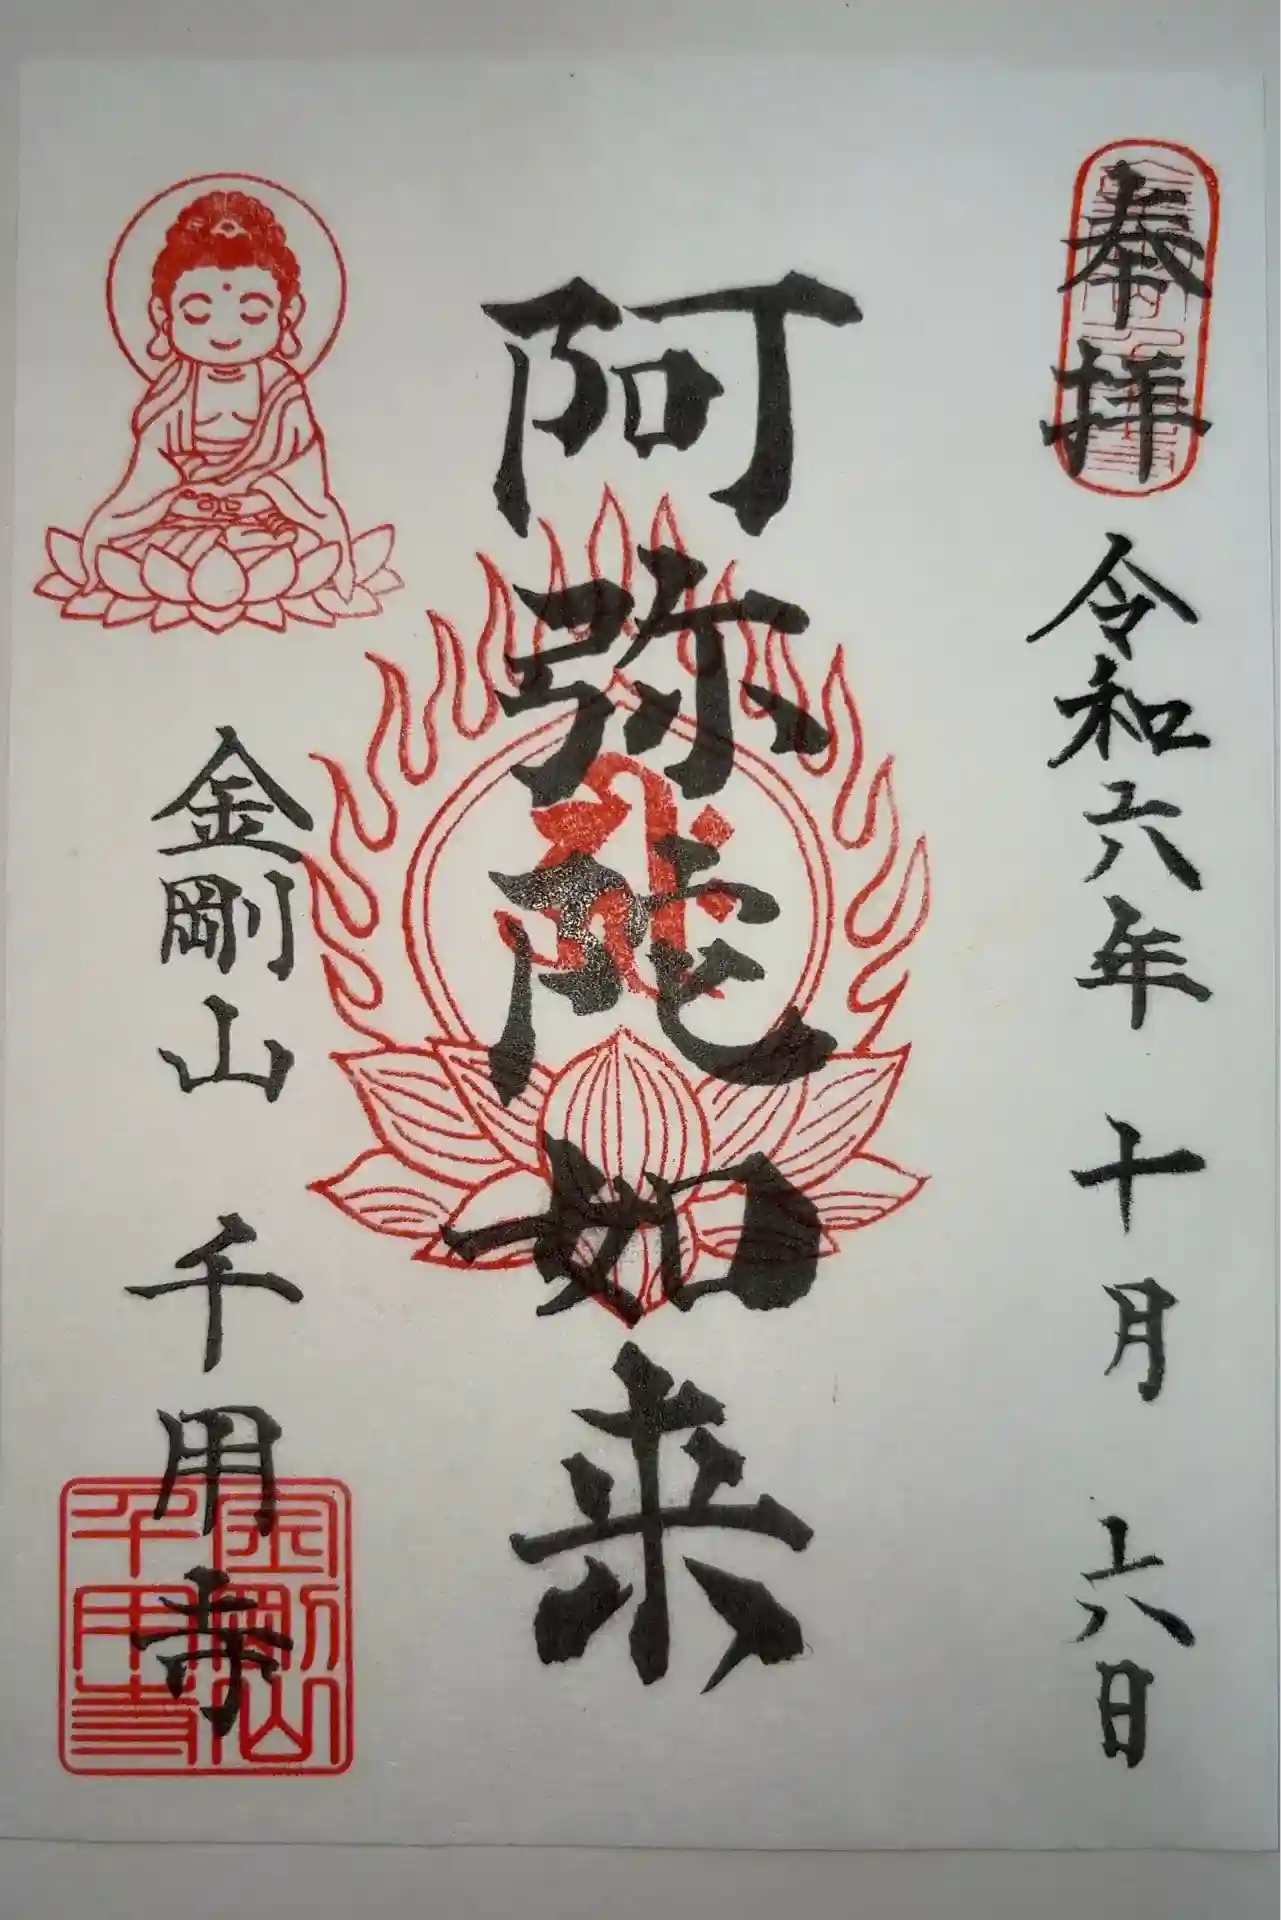 奉拝
令和六年 十月 六日
阿弥陀如来
金剛山 千用寺
金剛山
千用寺